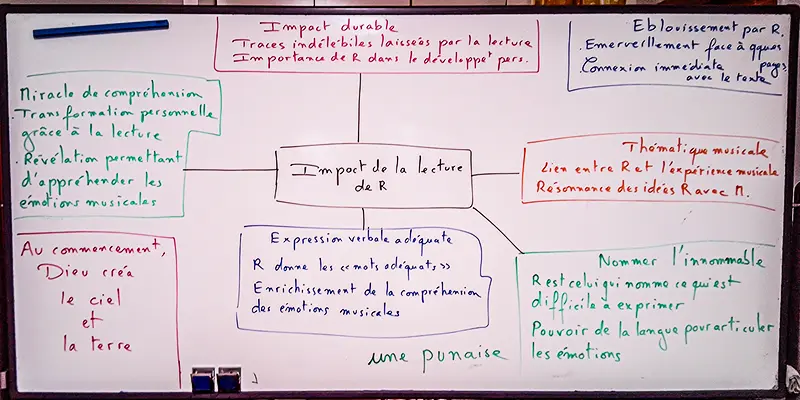 Impact durable
Traces indélébiles laissées par la lecture
Importance de R dans le développet pers.
Eblouissement par R.
. Emerveillement face à qques pages.
Connexion immédiate
avec le texte
Miracle de compréhension
. Transformation personnelle
grâce à la lecture
. Révélation permettant
d'appréhender les
émotions musicales
Impact de la lecture
de R
Thématique musicale
Lien entre R et l'expérience musicale
Résonnance des idées R avec M.
Au commencement,
Dieu créa
le ciel
et
la terre
Expression verbale adéquate
R donne les « mots adéquats »
Enrichissement de la compréhension
des émotions musicales
Nommer l'innommable
R est celui qui nomme ce qui est
difficile à exprimer
Pouvoir de la langue pour articuler
les émotions
une punaise